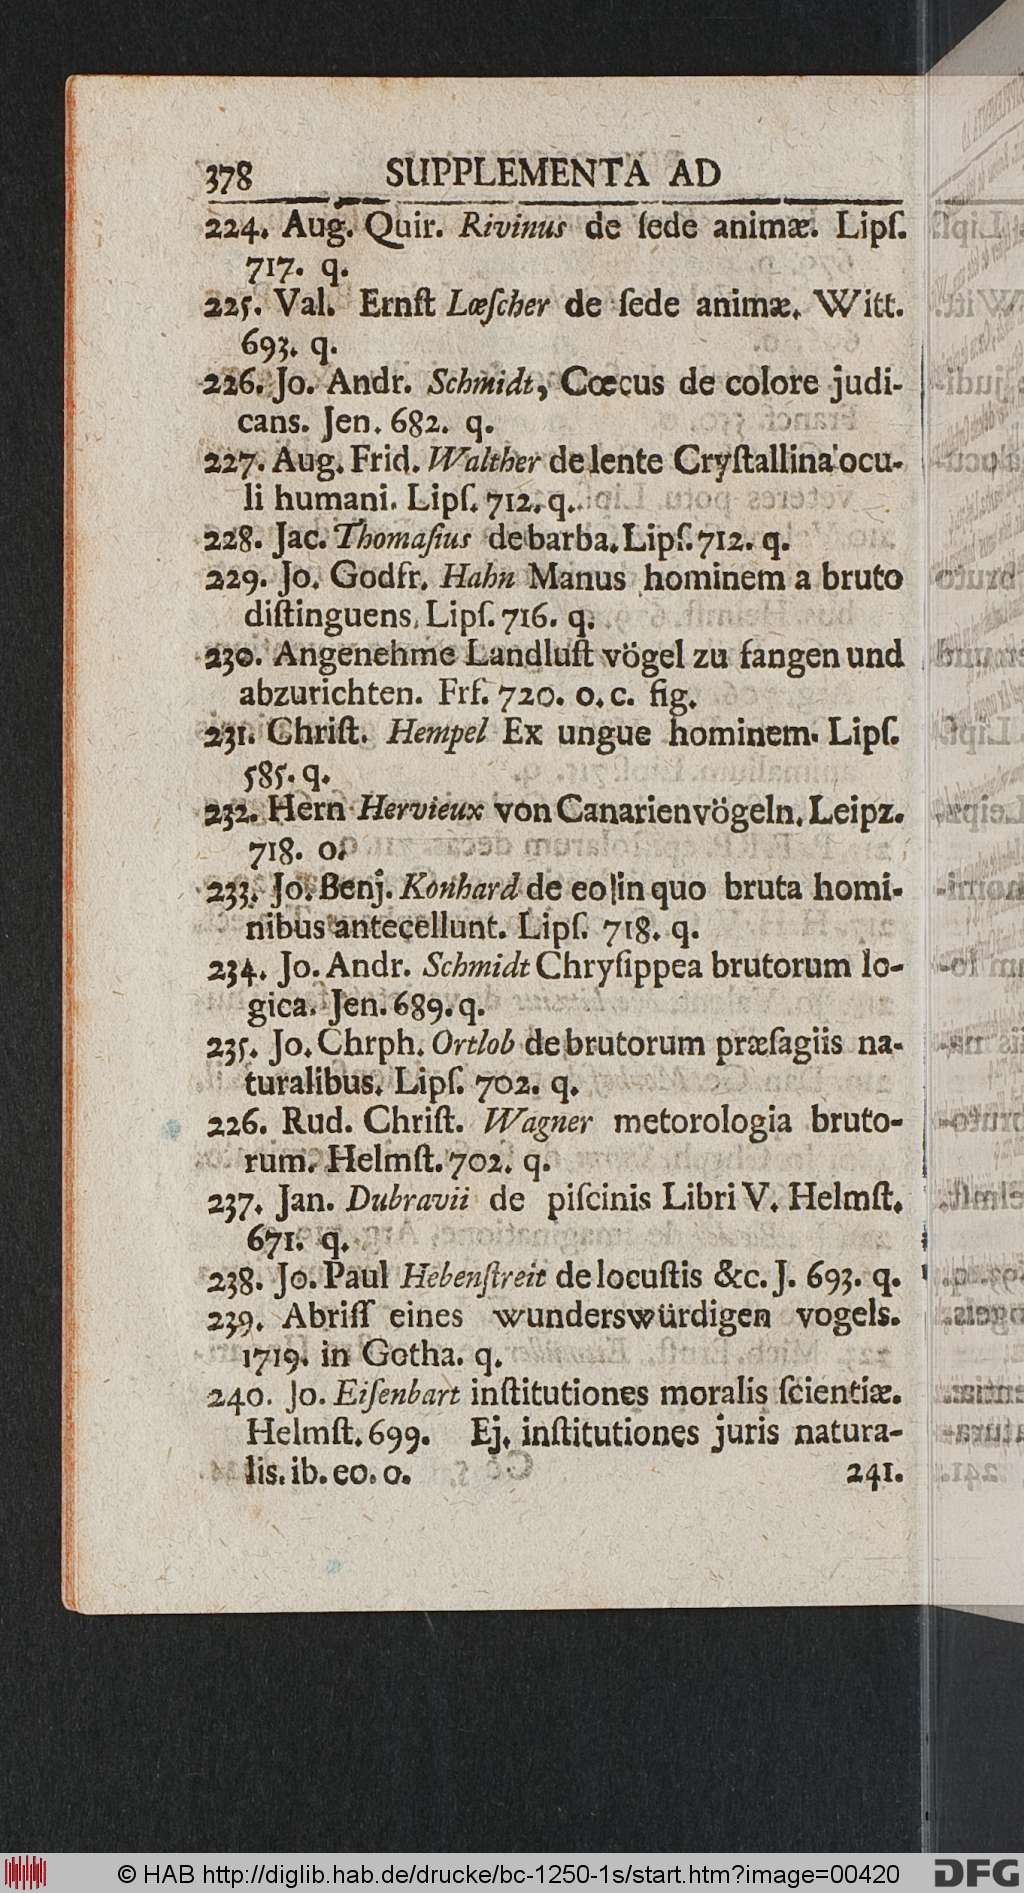 378 SUPPLEMENTA AD
224. Aug. Quir. Rivinus de ſede animæ. Lipſ.
717. q.
225. Val. Ernſt Lœſcher de ſede animæ. Witt.
693. q.
226. Jo. Andr. Schmidt, Cœcus de colore judi-
cans. Jen. 682. q.
227. Aug. Frid. Walther de lente Cryſtallina ocu-
li humani. Lipſ. 712. q.
228. Jac. Thomaſius de barba. Lipſ. 712. q.
229. Jo. Godfr. Hahn Manus hominem a bruto
diſtinguens. Lipſ. 716. q.
230. Angenehme Landluſt vögel zu fangen und
abzurichten. Frf. 720. o. c. fig.
231. Chriſt. Hempel Ex ungue hominem. Lipſ.
585. q.
232. Hern Hervieux von Canarienvögeln. Leipz.
718. o.
233. Jo. Benj. Konhard de eo in quo bruta homi-
nibus antecellunt. Lipſ. 718. q.
234. Jo. Andr. Schmidt Chryſippea brutorum lo-
gica. Jen. 689. q.
235. Jo. Chrph. Ortlob de brutorum præſagiis na-
turalibus. Lipſ. 702. q.
226. Rud. Chriſt. Wagner metorologia bruto-
rum. Helmſt. 702. q.
237. Jan. Dubravii de piſcinis Libri V. Helmſt.
671. q.
238. Jo. Paul Hebenſtreit de locuſtis &c. J. 693. q.
239. Abriſſ eines wunderswürdigen vogels.
1719. in Gotha. q.
240. Jo. Eiſenbart inſtitutiones moralis ſcientiæ.
Helmſt. 699. Ej. inſtitutiones juris natura-
lis. ib. eo. o. 241.
© HAB http://diglib.hab.de/drucke/bc-1250-1s/start.htm?image=00420 DFG